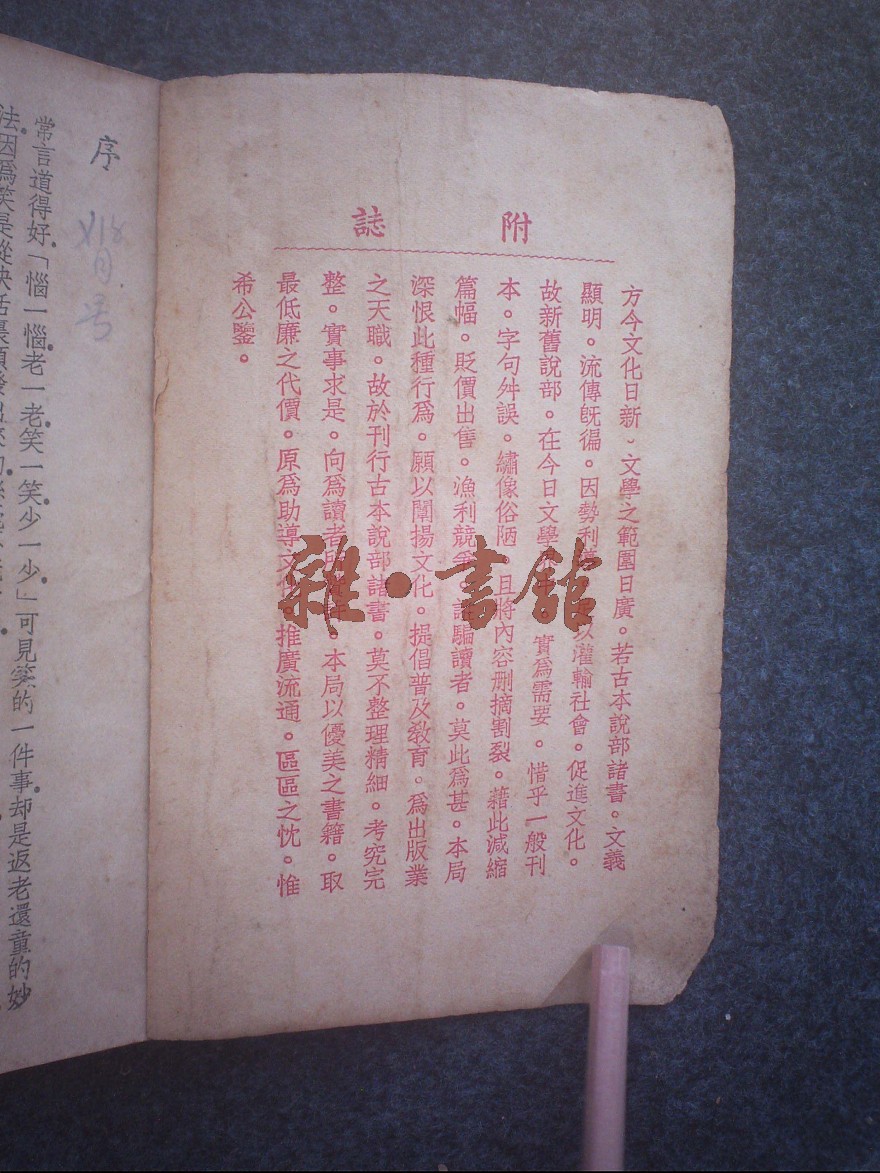 附誌
方今文化日新、文學之範圍日廣。若古本說部諸書。文義
顯明。流傳旣徧。因勢利 以灌輸社會。促進文化。
故新舊說部。在今日文學 實爲需要。惜乎一般刊
本。字句舛誤。繡像俗陋。且將內容删摘割裂。藉此減縮
篇幅。貶價出售。漁利競 騙讀者。莫此爲甚。本局
深恨此種行爲。願以闡揚文化。提倡普及敎育。爲出版業
之天職。故於刊行古本說部諸書。莫不整理精細。考究完
整。實事求是。向爲讀者 本局以優美之書籍。取
最低廉之代價。原爲助導文 推廣流通。區區之忱。惟
希公鑒。
序
常言道得好「惱一惱老一老笑一笑少一少」可見笑的一件事却是返老還童的妙
法因爲笑是從快活裏頭發出來的
雜·書館